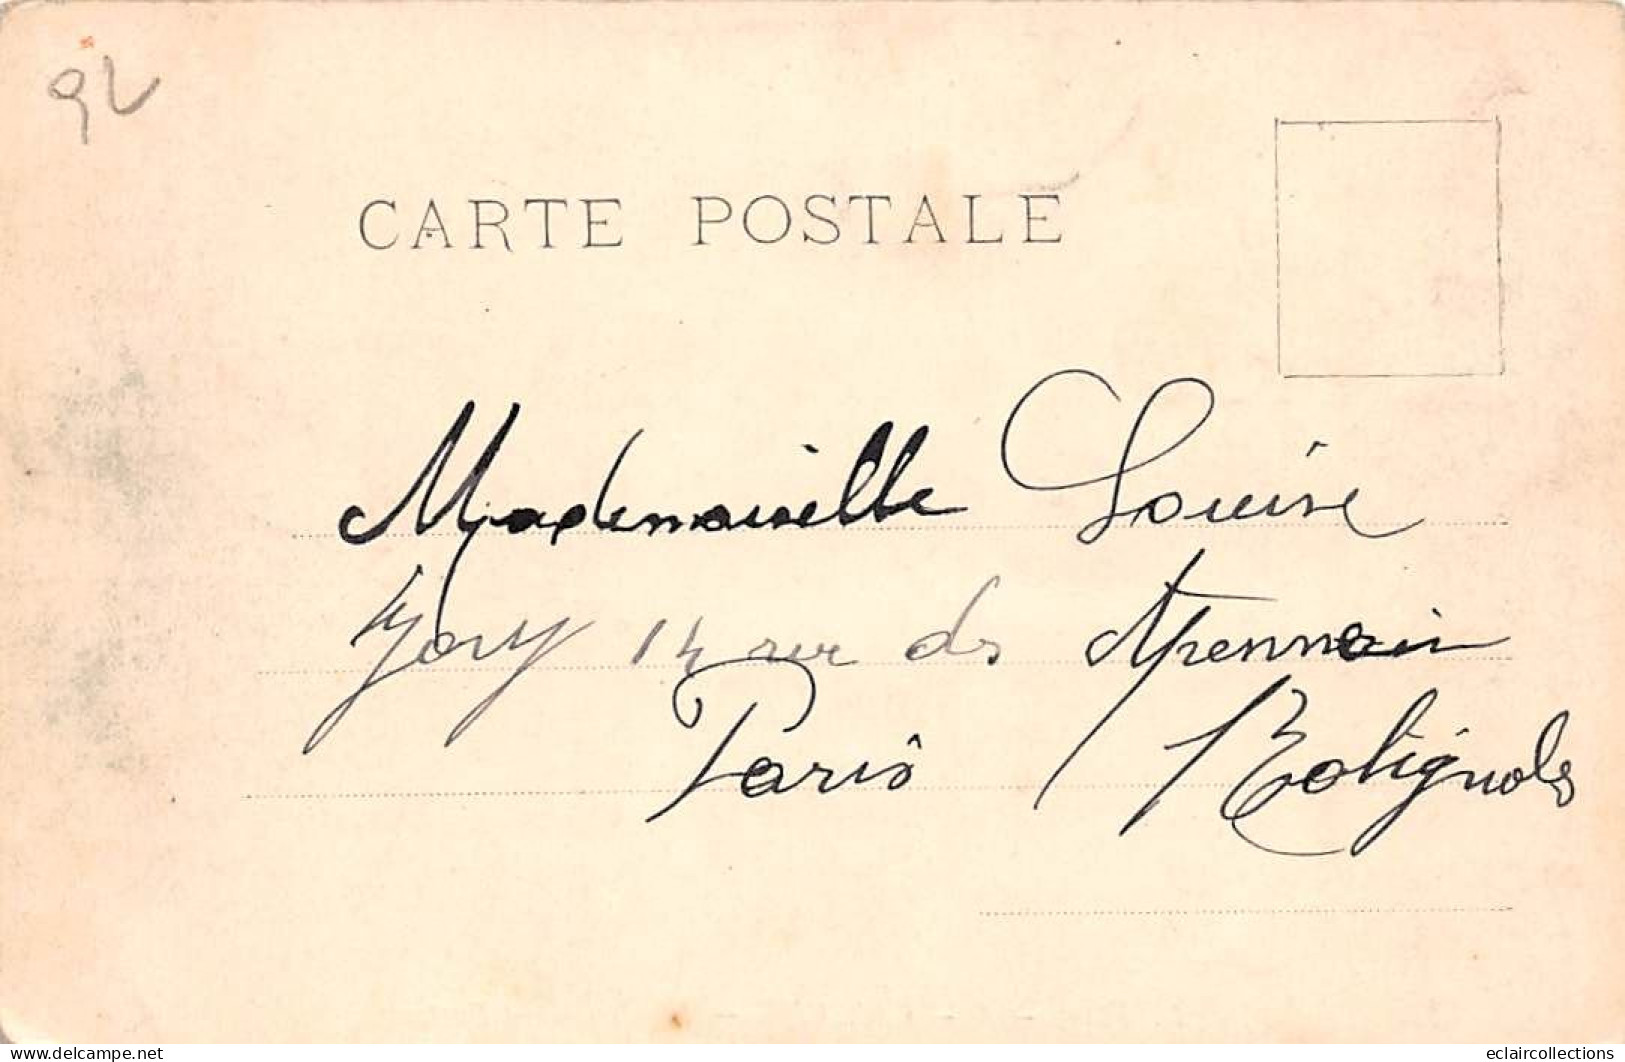 92
CARTE POSTALE
Mademoiselle Louise
14 rue de
Paris Batignoles
www.delcampe.net eclaircollections